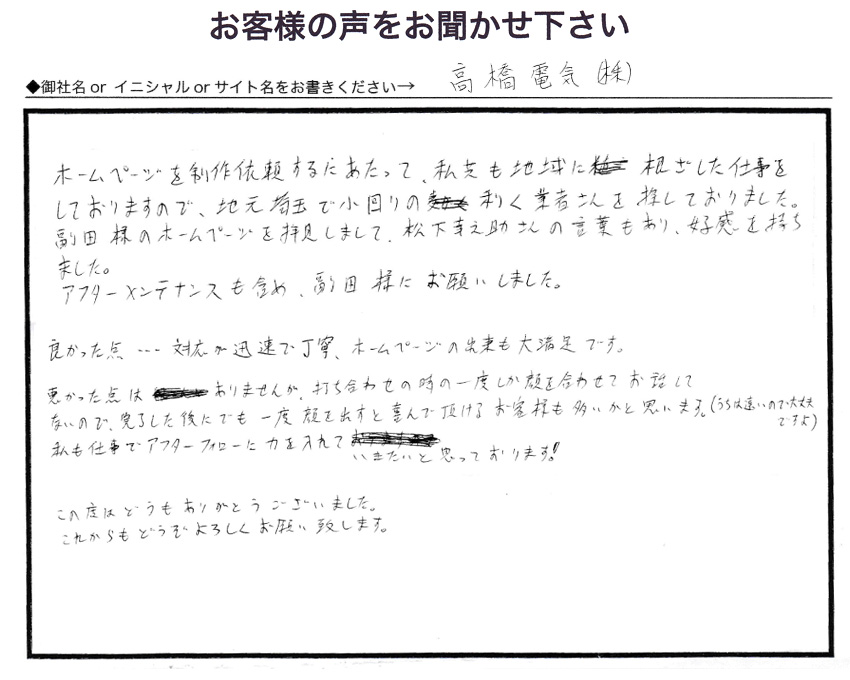 お客様の声をお聞かせ下さい
◆御社名 or イニシャル or サイト名をお書きください→ 高橋電気(株)
ホームページを制作依頼するにあたって、私共も地域に根ざした仕事を
しておりますので、地元埼玉で小回りの利く業者さんを探しておりました。
副田様のホームページを拝見しまして、松下幸之助さんの言葉もあり、好感を持ち
ました。
アフターメンテナンスも含め、副田様にお願いしました。
良かった点 … 対応が迅速で丁寧、ホームページの出来も大満足です。
悪かった点はありませんが、打ち合わせの時の一度しか顔を合わせてお話して
ないので、完了した後にでも一度顔を出すと喜んで頂けるお客様も多いかと思います。(うちは遠いので大丈夫
ですよ)
私も仕事でアフターフォローに力を入れて
いきたいと思っております!!
この度はどうもありがとうございました。
これからもどうぞよろしくお願い致します。